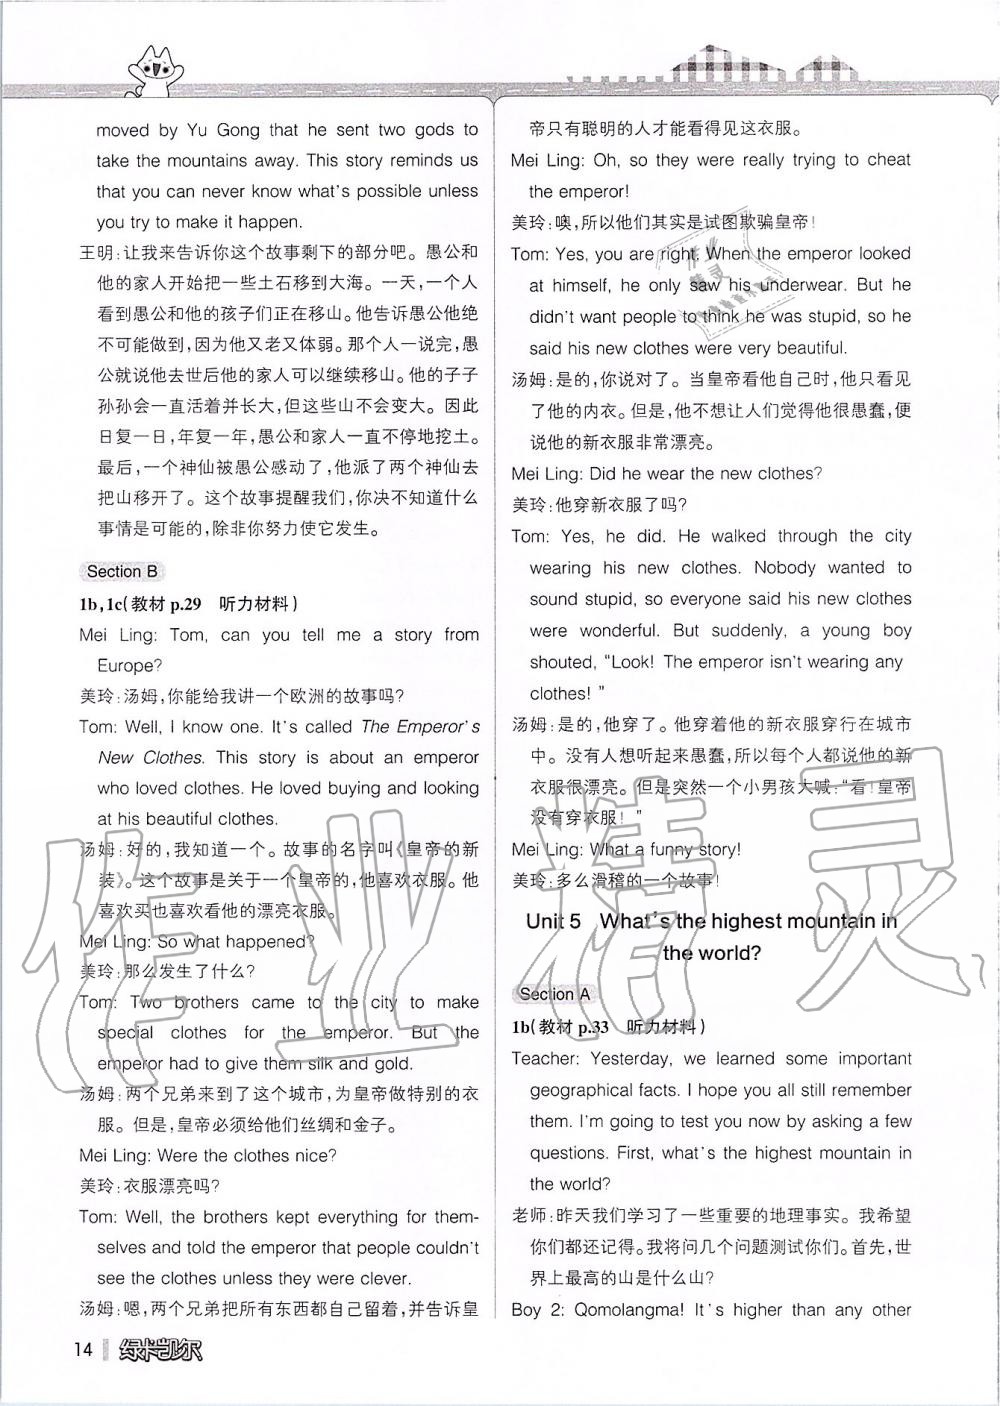 moved by Yu Gong that he sent two gods to
take the mountains away. This story reminds us
that you can never know what's possible unless
you try to make it happen.
王明:让我来告诉你这个故事剩下的部分吧。愚公和
他的家人开始把一些土石移到大海。一天,一个人
看到愚公和他的孩子们正在移山。他告诉愚公他绝
不可能做到,因为他又老又体弱。那个人一说完,愚
公就说他去世后他的家人可以继续移山。他的子子
孙孙会一直活着并长大,但这些山不会变大。因此
日复一日,年复一年,愚公和家人一直不停地挖土。
最后,一个神仙被愚公感动了,他派了两个神仙去
把山移开了。这个故事提醒我们,你决不知道什么
事情是可能的,除非你努力使它发生。
Section B
1b,1c(教材 p.29 听力材料)
Mei Ling: Tom, can you tell me a story from
Europe?
美玲:汤姆,你能给我讲一个欧洲的故事吗?
Tom: Well, I know one. It's called The Emperor's
New Clothes. This story is about an emperor
who loved clothes. He loved buying and looking
at his beautiful clothes.
汤姆:好的,我知道一个。故事的名字叫《皇帝的新
装》。这个故事是关于一个皇帝的,他喜欢衣服。他
喜欢买也喜欢看他的漂亮衣服。
Mei Ling: So what happened?
美玲:那么发生了什么?
Tom: Two brothers came to the city to make
special clothes for the emperor. But the
emperor had to give them silk and gold.
汤姆:两个兄弟来到了这个城市,为皇帝做特别的衣
服。但是,皇帝必须给他们丝绸和金子。
Mei Ling: Were the clothes nice?
美玲:衣服漂亮吗?
Tom: Well, the brothers kept everything for them-
selves and told the emperor that people couldn't
see the clothes unless they were clever.
汤姆:嗯,两个兄弟把所有东西都自己留着,并告诉皇
帝只有聪明的人才能看得见这衣服。
Mei Ling: Oh, so they were really trying to cheat
the emperor!
美玲:噢,所以他们其实是试图欺骗皇帝!
Tom: Yes, you are right. When the emperor looked
at himself, he only saw his underwear. But he
didn't want people to think he was stupid, so he
said his new clothes were very beautiful.
汤姆:是的,你说对了。当皇帝看他自己时,他只看见
了他的内衣。但是,他不想让人们觉得他很愚蠢,便
说他的新衣服非常漂亮。
Mei Ling: Did he wear the new clothes?
美玲:他穿新衣服了吗?
Tom: Yes, he did. He walked through the city
wearing his new clothes. Nobody wanted to
sound stupid, so everyone said his new clothes
were wonderful. But suddenly, a young boy
shouted, "Look! The emperor isn't wearing any
clothes! "
汤姆:是的,他穿了。他穿着他的新衣服穿行在城市
中。没有人想听起来愚蠢,所以每个人都说他的新
衣服很漂亮。但是突然一个小男孩大喊:"看!皇帝
没有穿衣服! "
Mei Ling: What a funny story!
美玲:多么滑稽的一个故事!
Unit 5 What's the highest mountain in
the world?
Section A
1b(教材 p.33 听力材料)
Teacher: Yesterday, we learned some important
geographical facts. I hope you all still remember
them. I'm going to test you now by asking a few
questions. First, what's the highest mountain in
the world?
老师:昨天我们学习了一些重要的地理事实。我希望
你们都还记得。我将问几个问题测试你们。首先,世
界上最高的山是什么山?
Boy 2: Qomolangma! It's higher than any other
14 绿卡凯尔
作业精灵